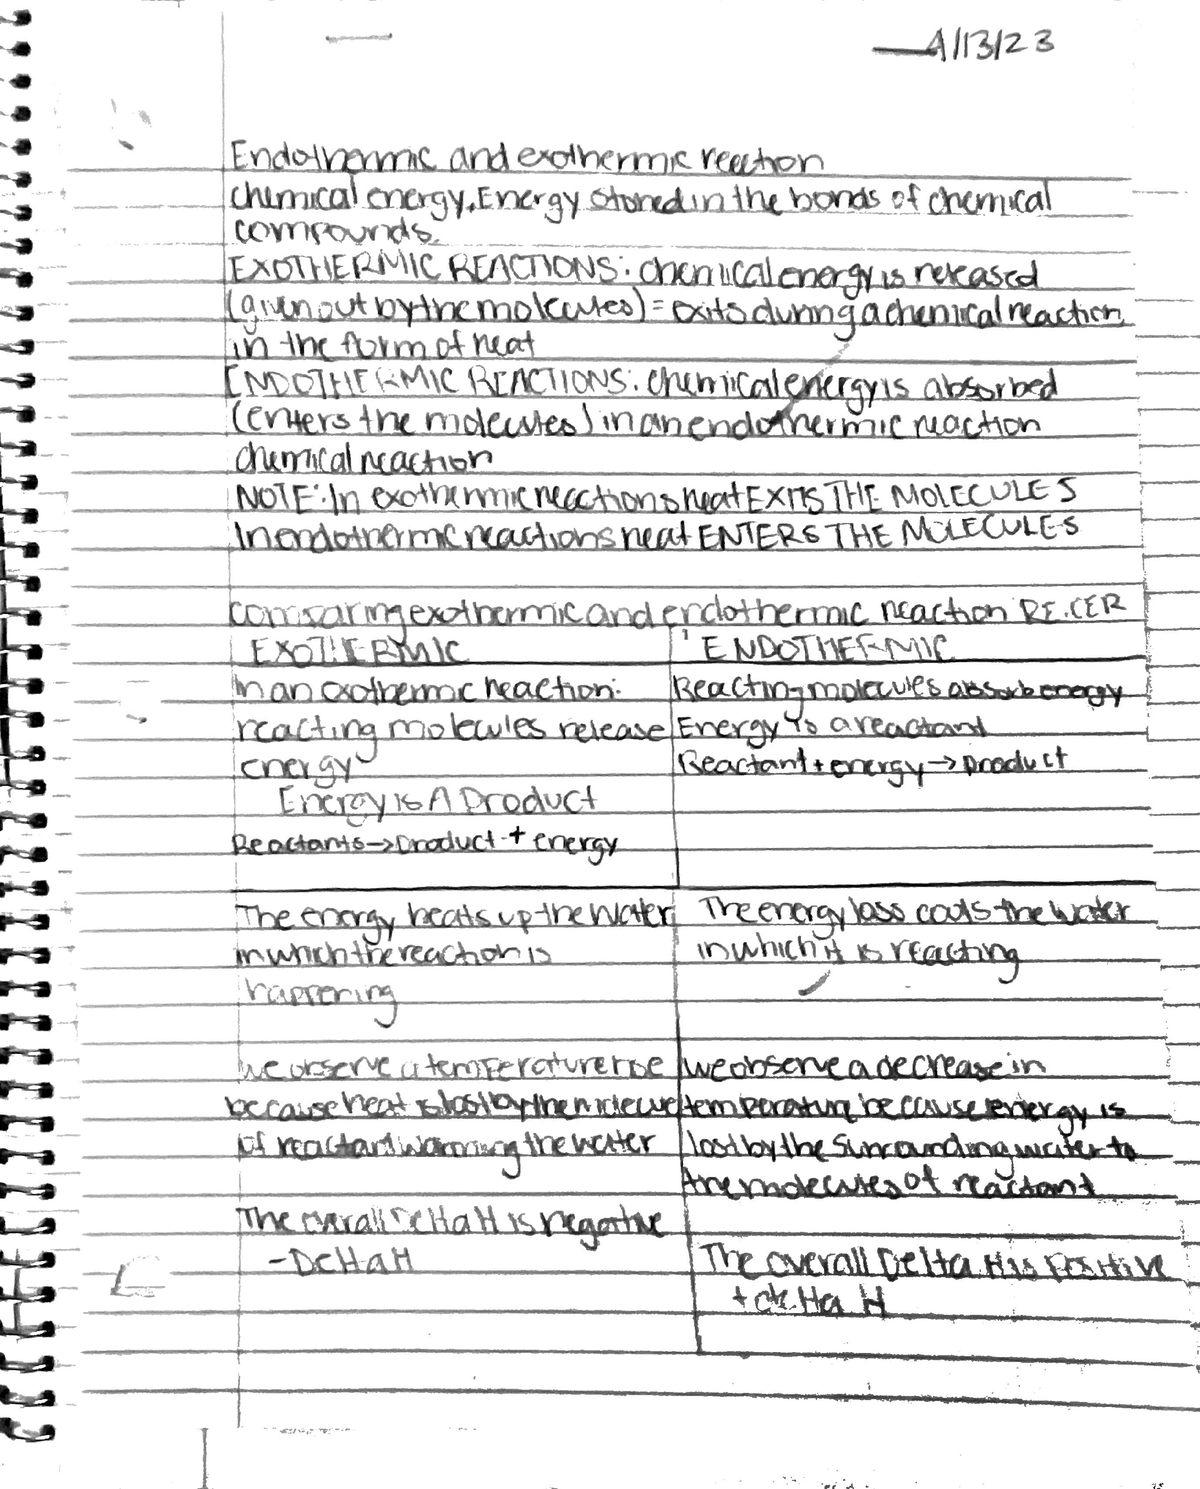 4/13/23
Endothermic and exothermic reaction
chemical energy. Energy stored in the bonds of chemical
compounds.
EXOTHERMIC REACTIONS: chemical energy is released
(given out by the molecules) = exits during a chemical reaction,
in the form of heat
ENDOTHERMIC REACTIONS: chemical energy is absorbed
(enters the molecules) in an endothermic reaction
chemical reaction
NOTE: In exothermic reactions heat EXITS THE MOLECULES
In endothermic reactions heat ENTERS THE MOLECULES
comparing exothermic and endothermic reaction RE.CER
EXOTHERMIC
In an exothermic reaction:
reacting molecules release
energy
Energy is A Product
Reactants → product + energy
ENDOTHERMIC
Reacting molecules absorb energy
Energy is a reactant
Reactant + energy → product
The energy heats up the water
in which the reaction is
happening
The energy loss cools the water
in which it is reacting
we observe a temperature rise
because heat is lost by the molecule
of reactant warming the water
we observe a decrease in
temperature because energy is
lost by the surrounding water to
the molecules of reactant
The overall Delta H is negative
- Delta H
The overall Delta H is positive
+ delta H